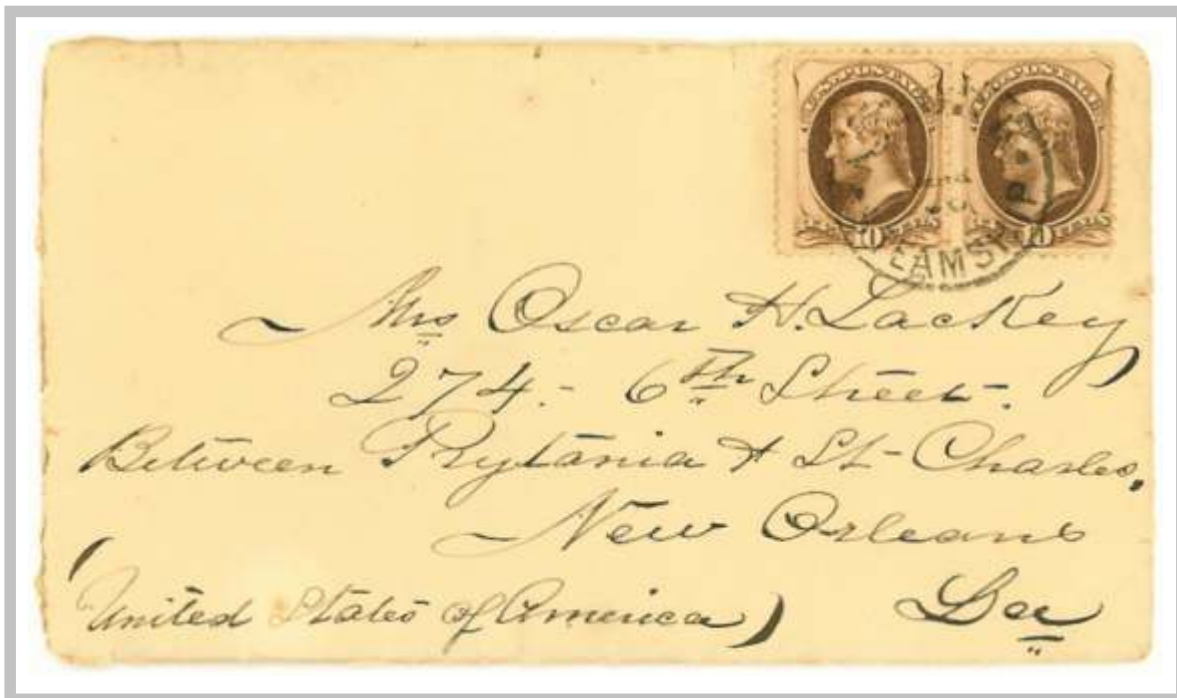 U.S. POSTAGE U.S. POSTAGE
10 10
EAMSH
Mrs Oscar H. Lackey
274.- 6th Street.
Between Prytania & St- Charles,
New Orleans
(United States of America) Lou